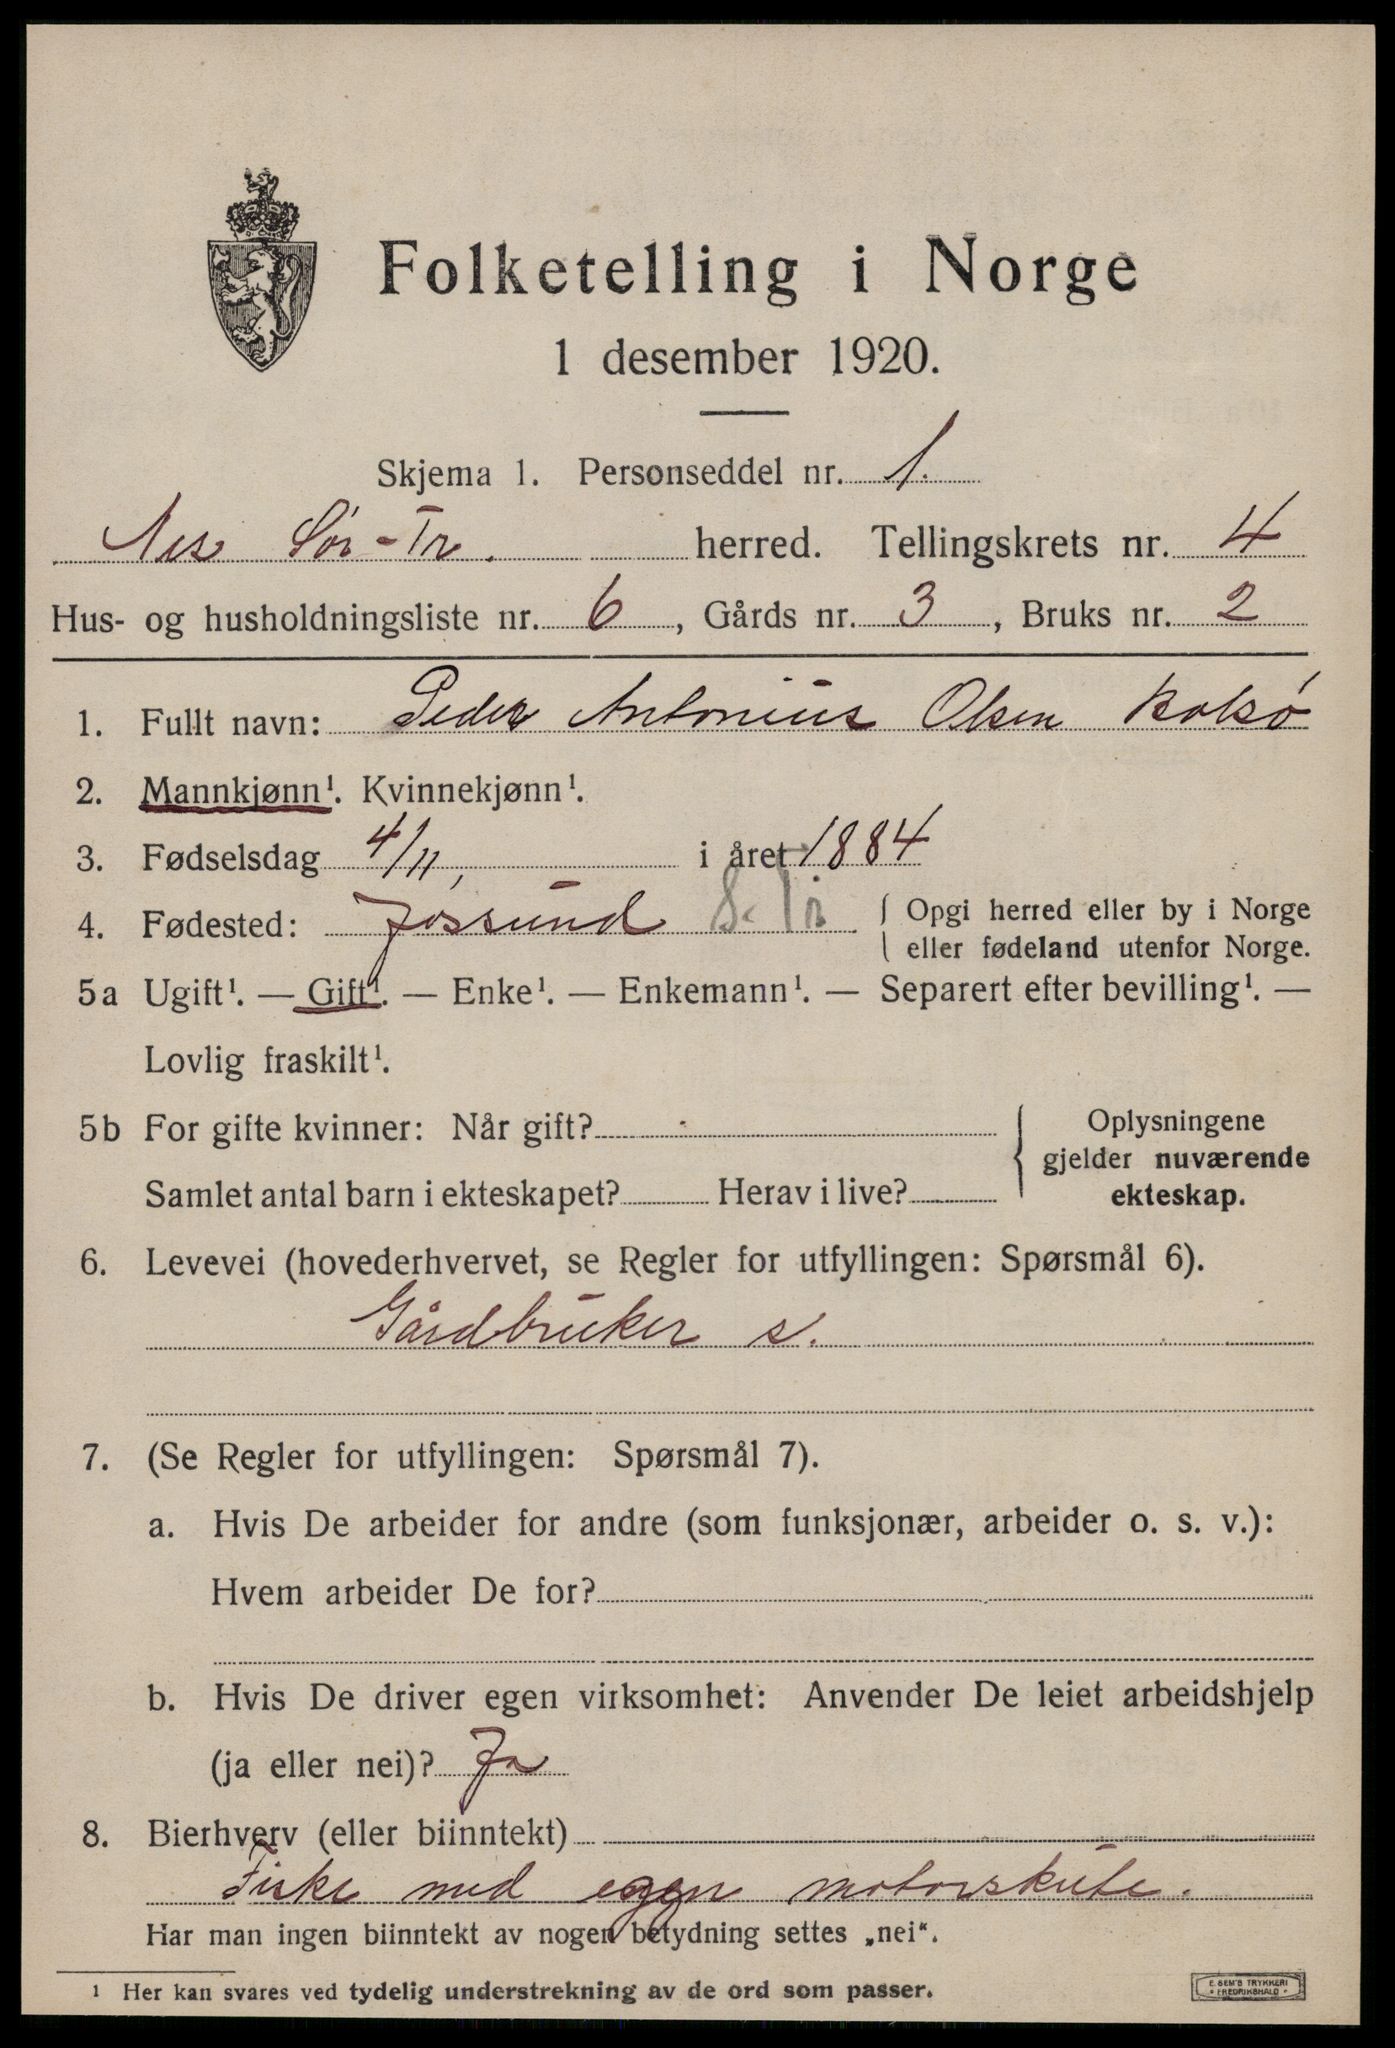 Folketelling i Norge
1 desember 1920.
Skjema 1. Personseddel nr. 1.
Nes Sør-Tr. herred. Tellingskrets nr. 4
Hus- og husholdningsliste nr. 6, Gårds nr. 3, Bruks nr. 2
1. Fullt navn: Peder Antonius Olsen Kolsø
2. Mannkjønn¹. Kvinnekjønn¹.
3. Fødselsdag 4/11, i året 1884
4. Fødested: Jøssund S. Tr. { Opgi herred eller by i Norge
eller fødeland utenfor Norge.
5a Ugift¹. — Gift¹. — Enke¹. — Enkemann¹. — Separert efter bevilling¹. —
Lovlig fraskilt¹.
5b For gifte kvinner: Når gift?
Samlet antal barn i ekteskapet? Herav i live?
{ Oplysningene
gjelder nuværende
ekteskap.
6. Levevei (hovederhvervet, se Regler for utfyllingen: Spørsmål 6).
Gårdbruker s.
7. (Se Regler for utfyllingen: Spørsmål 7).
a. Hvis De arbeider for andre (som funksjonær, arbeider o. s. v.):
Hvem arbeider De for?
b. Hvis De driver egen virksomhet: Anvender De leiet arbeidshjelp
(ja eller nei)? Ja
8. Bierhverv (eller biinntekt)
Fiske med egen motorskute.
Har man ingen biinntekt av nogen betydning settes „nei".
¹ Her kan svares ved tydelig understrekning av de ord som passer.
E. SEM'S TRYKKERI
• FREDRIKSHALD •